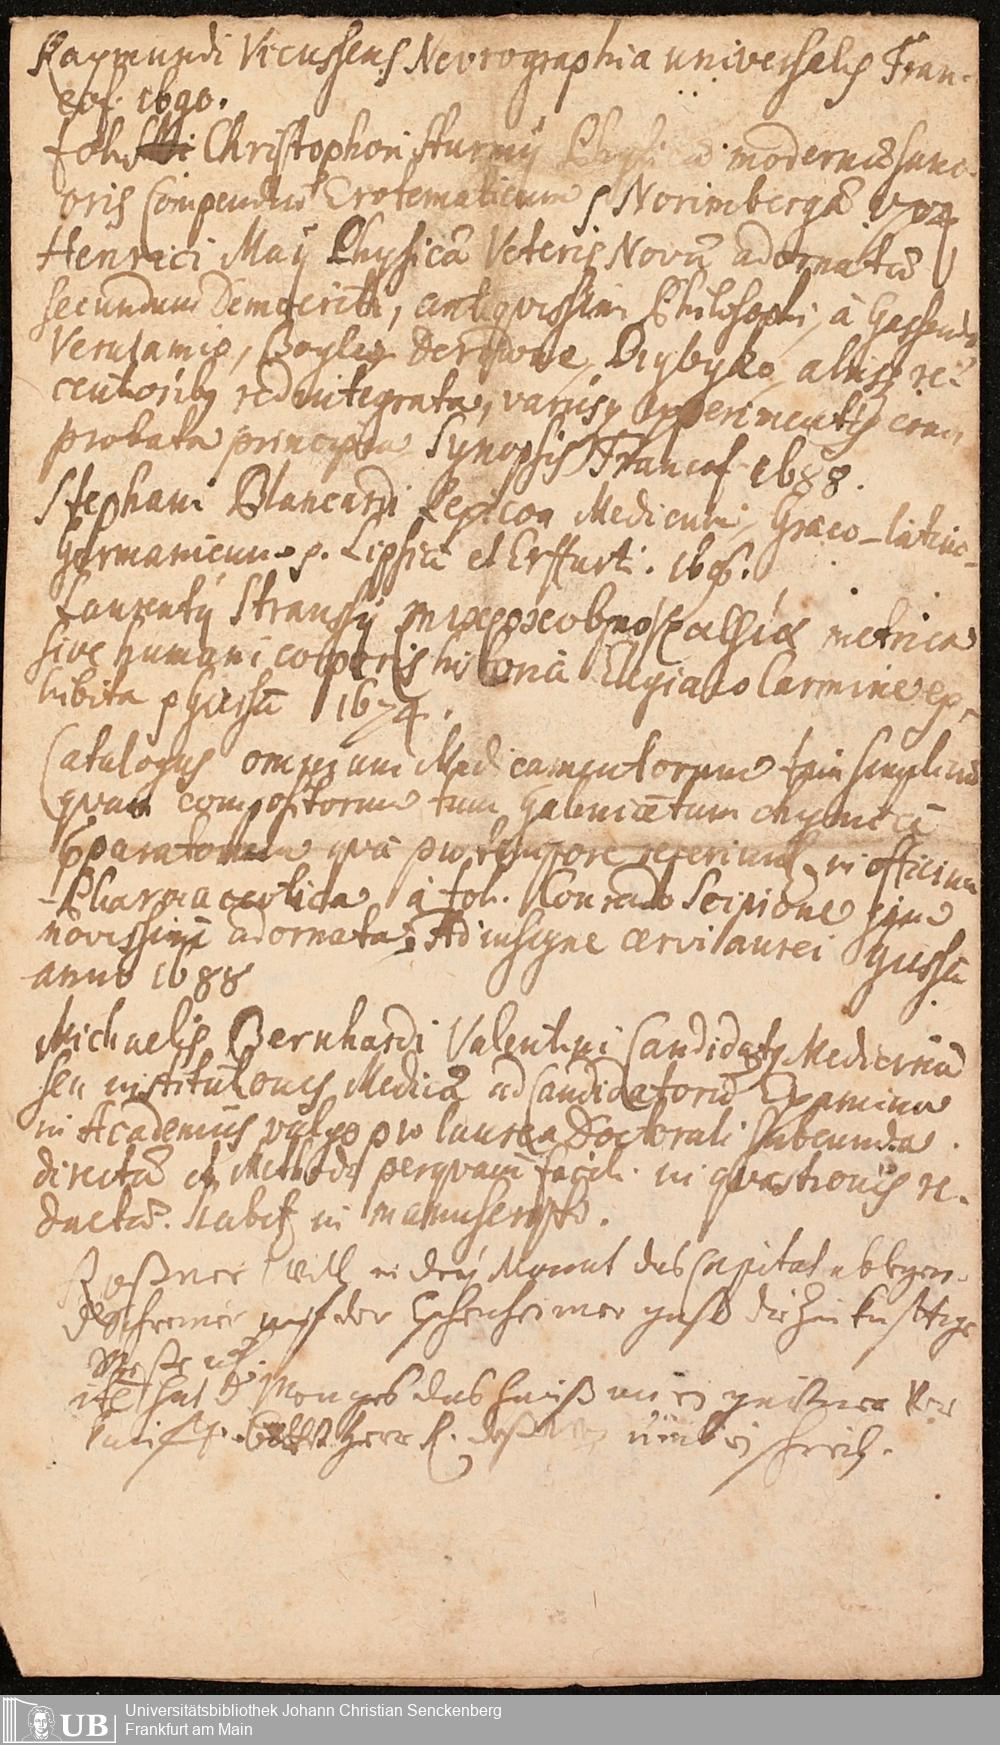 Raymundi Vieussens Nevrographia universalis Fran-
cof. 1690.
Joh. Christophori Sturmij Physicae modernae sani-
oris Compendium Erotematicum p Norimbergae 1704
Henrici Maij Physica Veteris Nova adornata
secundum Democriti, antiquissimi Philosophi, à Gassendo
Verulamio, Boyleo Derodone, Digbyeo, aliisq re-
centioribq redintegrata, varijsq experimentis com
probata principia Synopsis Francof 1688.
Stephani Blancardi Lexicon Medicum, Graeco-latino-
Germanicum p. Lipsiae et Erffurti.
Laurentij Straussij metrica
sive humani corporis historia Elegiaco Carmine ex-
hibita p Giessae 1674.
Catalogus omnium Medicamentorum tam simplicium
quam compositorum tum Galenice tum chymice
pparatorum quae pro tempore reperiunt in officina
Pharmaceutica à Joh. Conrado Scipione
novissime adornata; Ad insigne cervi aurei Gissae
anno 1688
Michaelis Bernhardi Valentini Candidatq Medicinae
seu institutiones Medicae ad Candidatorum Examina
in Academiis vulgo pro laurea Doctorali subeunda
directae et Methodo perquam facili in quaestiones re-
ductae. habet in manuscripto.
will in drey Monat das Capital ablegen.
auf der Eschenheimer gass die
hat das hauß
Herr